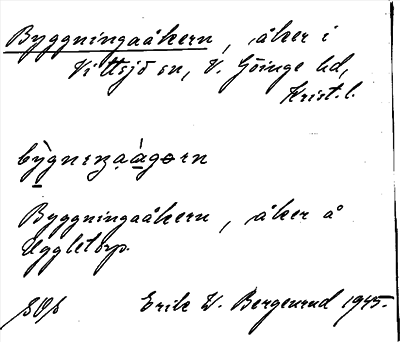 Byggningaåkern, åker i
Vittsjö sn, V. Göinge hd,
Krist. l.
bỳgninga̤ágɵrn
Byggningaåkern, åker å
Uggletorp.
Erik W. Bergenrud 1945.